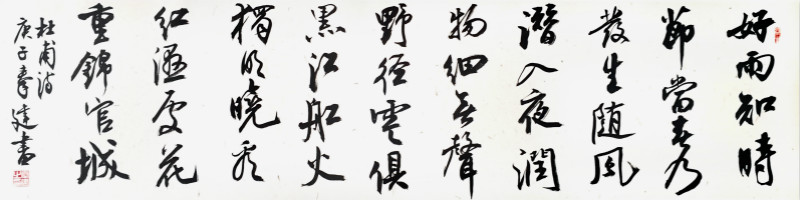 好雨知時
節當春乃
發生随風
潛入夜潤
物細無聲
野径雲俱
黑江船火
獨明曉看
紅濕處花
重錦官城
杜甫詩
庚子建書